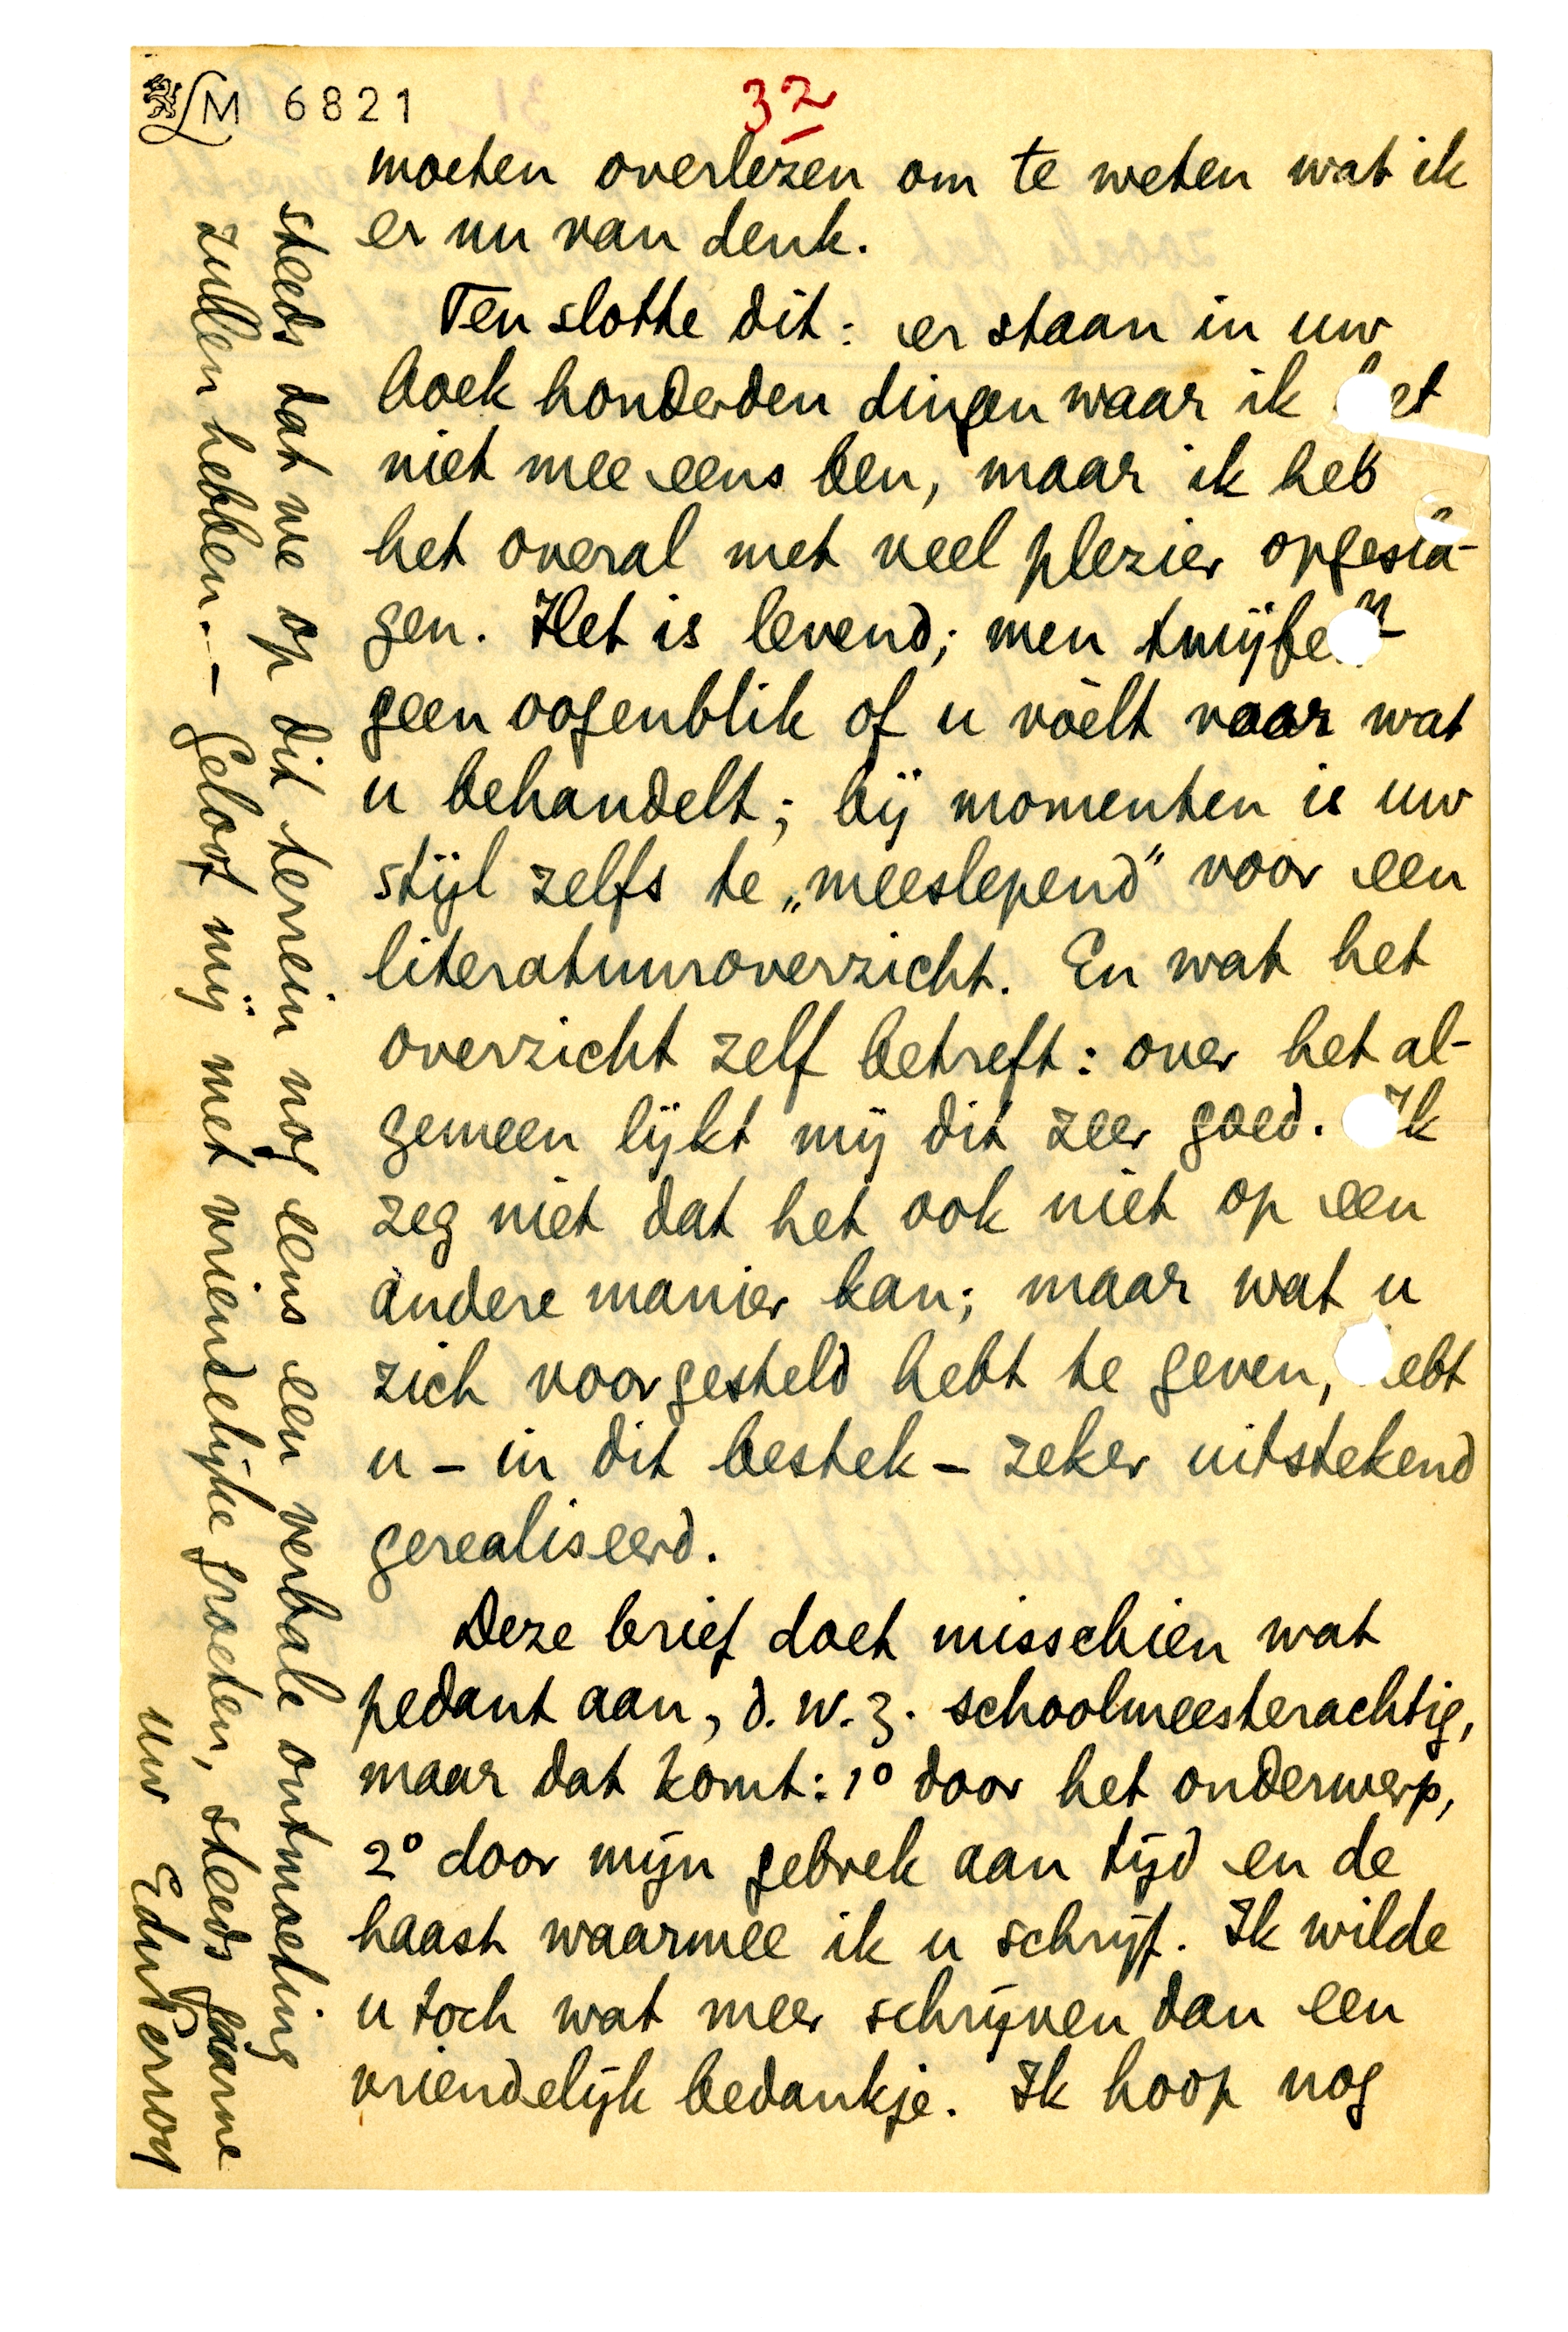 LM 6821
32
moeten overlezen om te weten wat ik
er nu van denk.
Ten slotte dit: er staan in uw
boek honderden dingen waar ik het
niet mee eens ben, maar ik heb
het overal met veel plezier opgesla-
gen. Het is levend; men twijfelt
geen oogenblik of u vòelt voor wat
u behandelt; bij momenten is uw
stijl zelfs te „meeslepend” voor een
literatuuroverzicht. En wat het
overzicht zelf betreft: over het al-
gemeen lijkt mij dit zeer goed. Ik
zeg niet dat het ook niet op een
andere manier kan; maar wat u
zich voorgesteld hebt te geven, hebt
u – in dit bestek – zeker uitstekend
gerealiseerd.
Deze brief doet misschien wat
pedant aan, d.w.z. schoolmeesterachtig,
maar dat komt: 1° door het onderwerp,
2° door mijn gebrek aan tijd en de
haast waarmee ik u schrijf. Ik wilde
u toch wat meer schrijven dan een
vriendelijk bedankje. Ik hoop nog
steeds dat we op dit terrein nog eens een verbale ontmoeting
zullen hebben. — Geloof mij met vriendelijke groeten, steeds gaarne
uw EduPerron